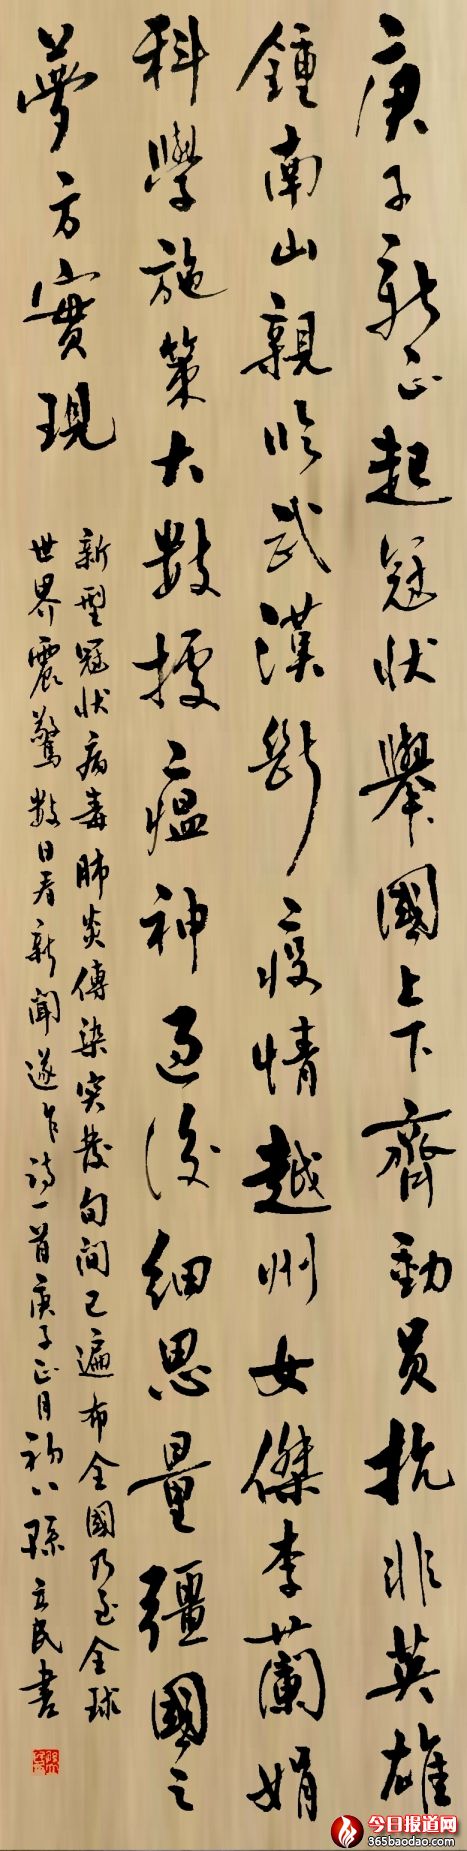 庚子新正起冠状舉國上下齊動員抗非英雄
鍾南山親临武漢斷疫情越州女傑李蘭娟
科學施策大數據瘟神过後細思量彊國之
夢方實現
新型冠状病毒肺炎傳染突發旬间已遍布全國乃至全球
世界震驚數日看新聞遂作詩一首庚子正月初八孫立民書
今日报道网
365baodao.com